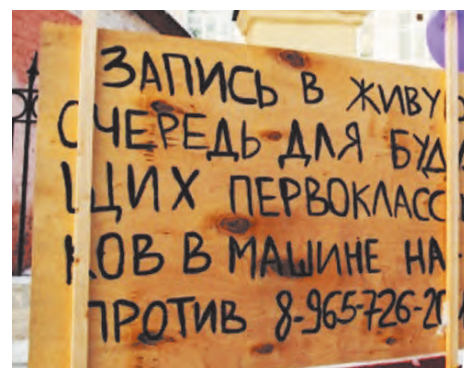 ЗАПИСЬ В ЖИВУ
ОЧЕРЕДЬ ДЛЯ БУД
ЩИХ ПЕРВОКЛАСС
КОВ В МАШИНЕ НА
ПРОТИВ 8-965-726-20